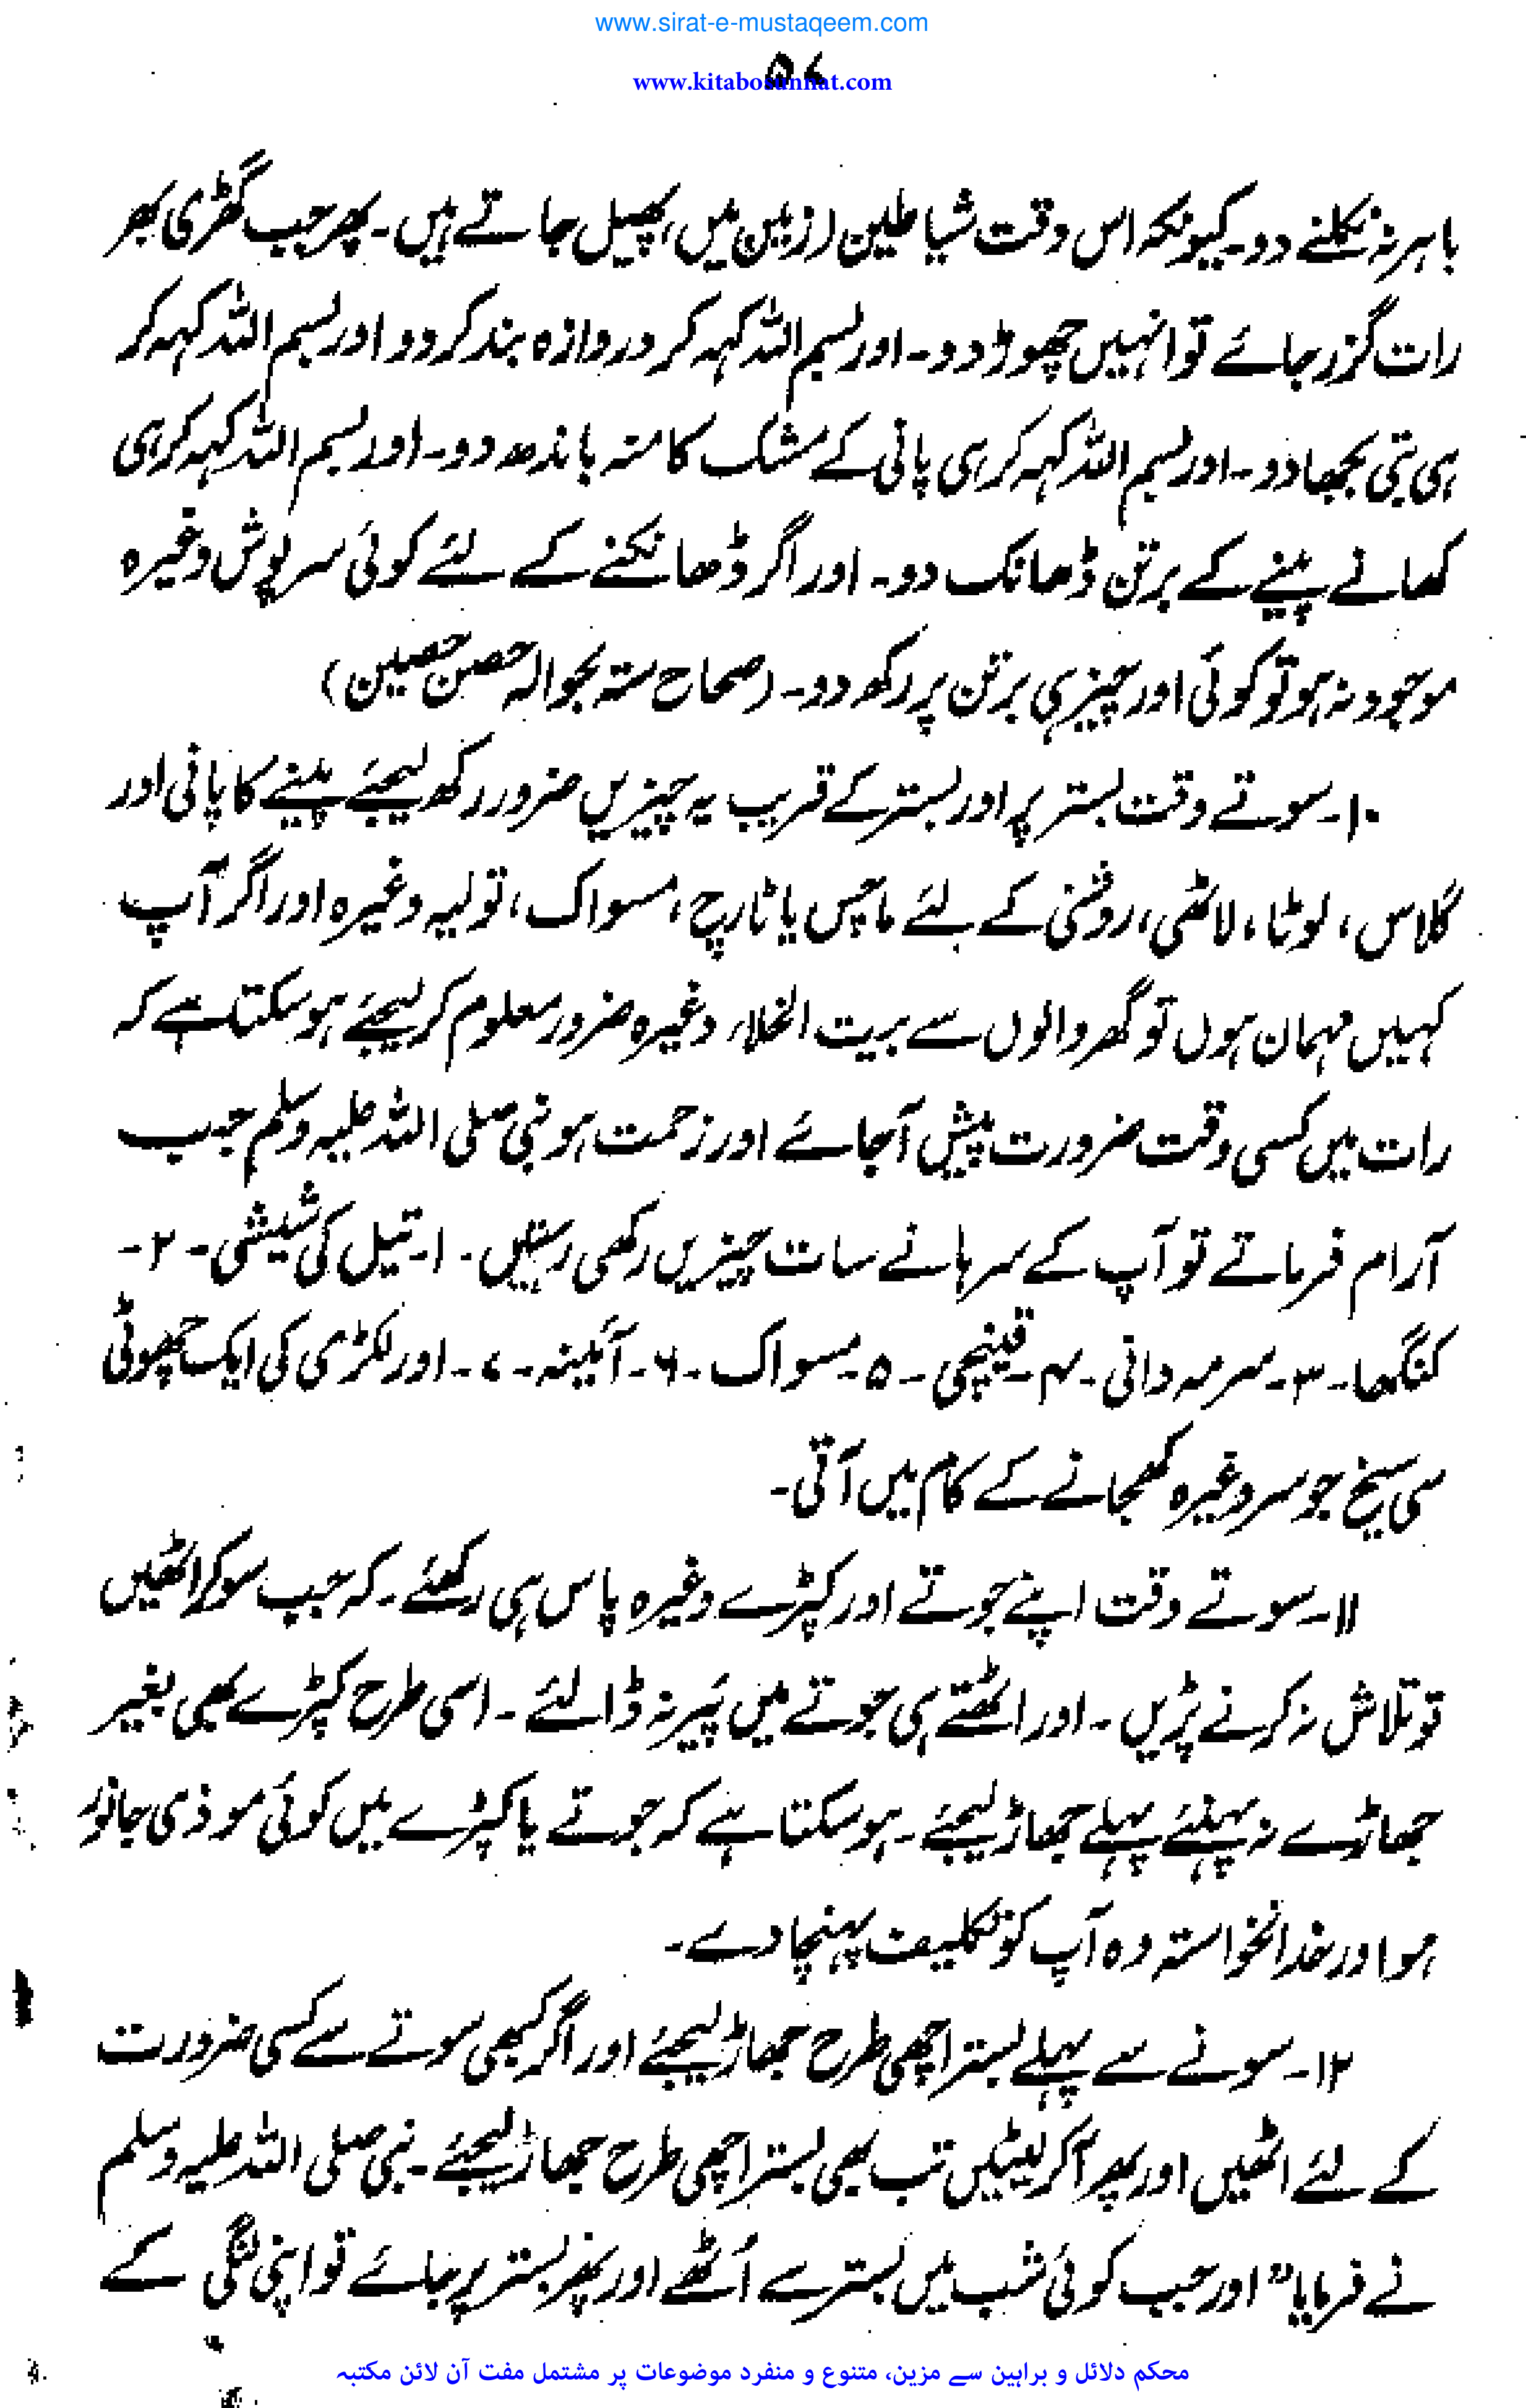 www.sirat-e-mustaqeem.com
۵۷
www.kitabosunnat.com
باہر نہ نکلنے دو۔ کیونکہ اس وقت شیاطین (زمین میں) پھیل جاتے ہیں۔ پھر جب گھڑی بھر
رات گزر جائے تو انہیں چھوڑ دو۔ اور بسم اللہ کہہ کر دروازہ بند کر دو اور بسم اللہ کہہ کر
ہی بتی بجھا دو۔ اور بسم اللہ کہہ کر ہی پانی کے مشک کا منہ باندھ دو۔ اور بسم اللہ کہہ کر ہی
کھانے پینے کے برتن ڈھانک دو۔ اور اگر ڈھانکنے کے لئے کوئی سرپوش وغیرہ
موجود نہ ہو تو کوئی اور چیز ہی برتن پر رکھ دو۔ (صحاح ستہ بحوالہ حصن حصین)
۱۰۔ سوتے وقت بستر پر اور بستر کے قریب یہ چیزیں ضرور رکھ لیجئے پینے کا پانی اور
گلاس، لوٹا، لاٹھی، روشنی کے لئے ماچس یا ٹارچ، مسواک، تولیہ وغیرہ اور اگر آپ
کہیں مہمان ہوں تو گھر والوں سے بیت الخلاء وغیرہ ضرور معلوم کر لیجئے ہو سکتا ہے کہ
رات میں کسی وقت ضرورت پیش آجائے اور زحمت ہو نبی صلی اللہ علیہ وسلم جب
آرام فرماتے تو آپ کے سرہانے سات چیزیں رکھی رہتیں۔ ۱۔ تیل کی شیشی۔ ۲۔
کنگھا۔ ۳۔ سرمہ دانی۔ ۴۔ قینچی۔ ۵۔ مسواک۔ ۶۔ آئینہ۔ ۷۔ اور لکڑی کی ایک چھوٹی
سی سیخ جو سر وغیرہ کھجانے کے کام میں آتی۔
۱۱۔ سوتے وقت اپنے جوتے اور کپڑے وغیرہ پاس ہی رکھئے۔ کہ جب سو کر اٹھیں
تو تلاش نہ کرنے پڑیں۔ اور اٹھتے ہی جوتے میں پَیر نہ ڈالئے۔ اسی طرح کپڑے بھی بغیر
جھاڑے نہ پہنئے پہلے جھاڑ لیجئے۔ ہو سکتا ہے کہ جوتے یا کپڑے میں کوئی موذی جانور
ہو اور خدانخواستہ وہ آپ کو تکلیف پہنچا دے۔
۱۲۔ سونے سے پہلے بستر اچھی طرح جھاڑ لیجئے اور اگر کبھی سوتے سے کسی ضرورت
کے لئے اٹھیں اور پھر آ کر لیٹیں تب بھی بستر اچھی طرح جھاڑ لیجئے۔ نبی صلی اللہ علیہ وسلم
نے فرمایا "اور جب کوئی شب میں بستر سے اُٹھے اور پھر بستر پر جائے تو اپنی لنگی کے
محکم دلائل و براہین سے مزین، متنوع و منفرد موضوعات پر مشتمل مفت آن لائن مکتبہ